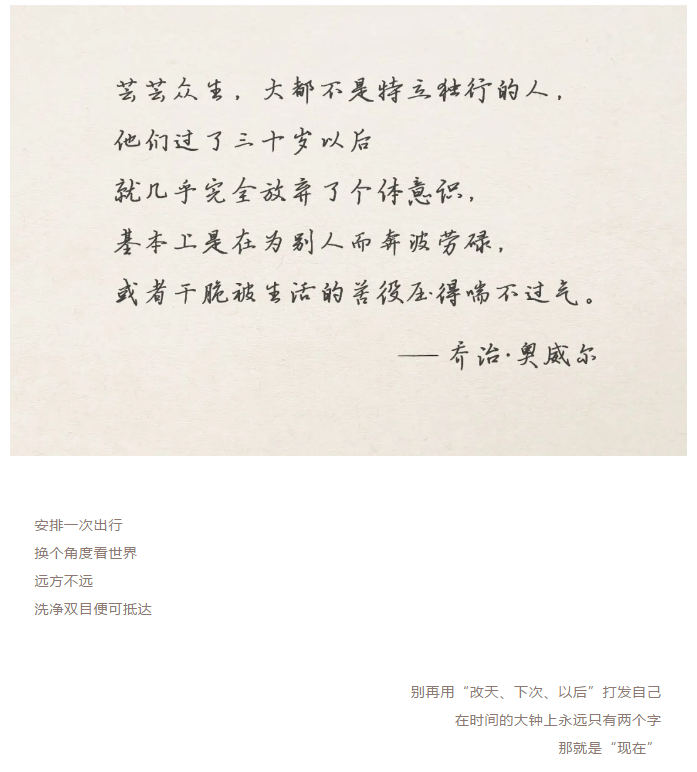 芸芸众生，大都不是特立独行的人，
他们过了三十岁以后
就几乎完全放弃了个体意识，
基本上是在为别人而奔波劳碌，
或者干脆被生活的苦役压得喘不过气。
—— 乔治·奥威尔
安排一次出行
换个角度看世界
远方不远
洗净双目便可抵达
别再用“改天、下次、以后”打发自己
在时间的大钟上永远只有两个字
那就是“现在”